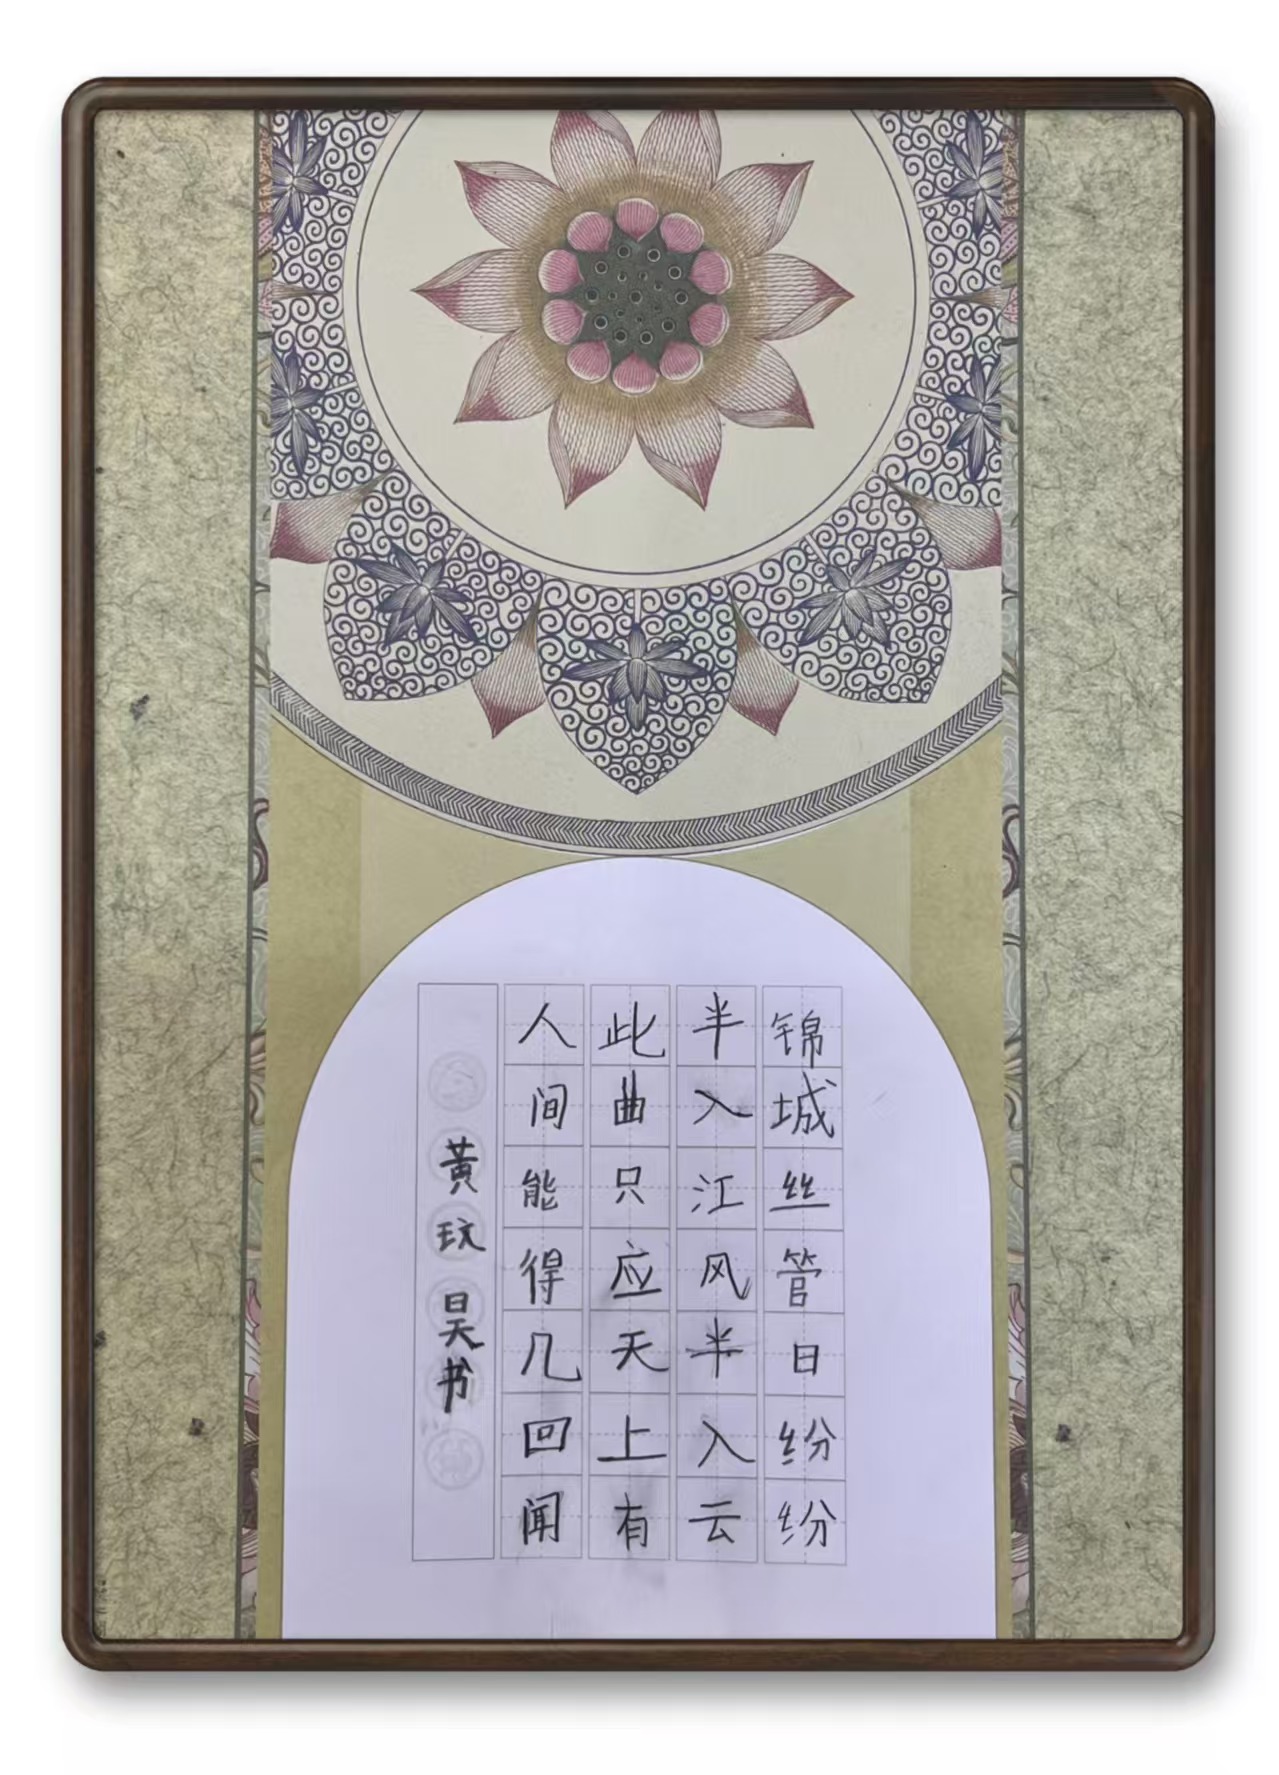 锦城丝管日纷纷
半入江风半入云
此曲只应天上有
人间能得几回闻
黄玟昊书